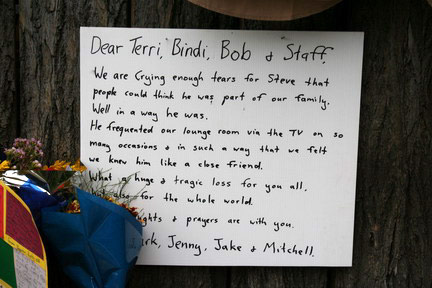 Dear Terri, Bindi, Bob & Staff,
We are Crying enough tears for Steve that
people could think he was part of our family.
Well in a way he was.
He frequented our lounge room via the TV on so
many occasions & in such a way that we felt
we knew him like a close friend.
What a huge & tragic loss for you all.
also for the whole world.
& prayers are with you.
Jenny, Jake & Mitchell.